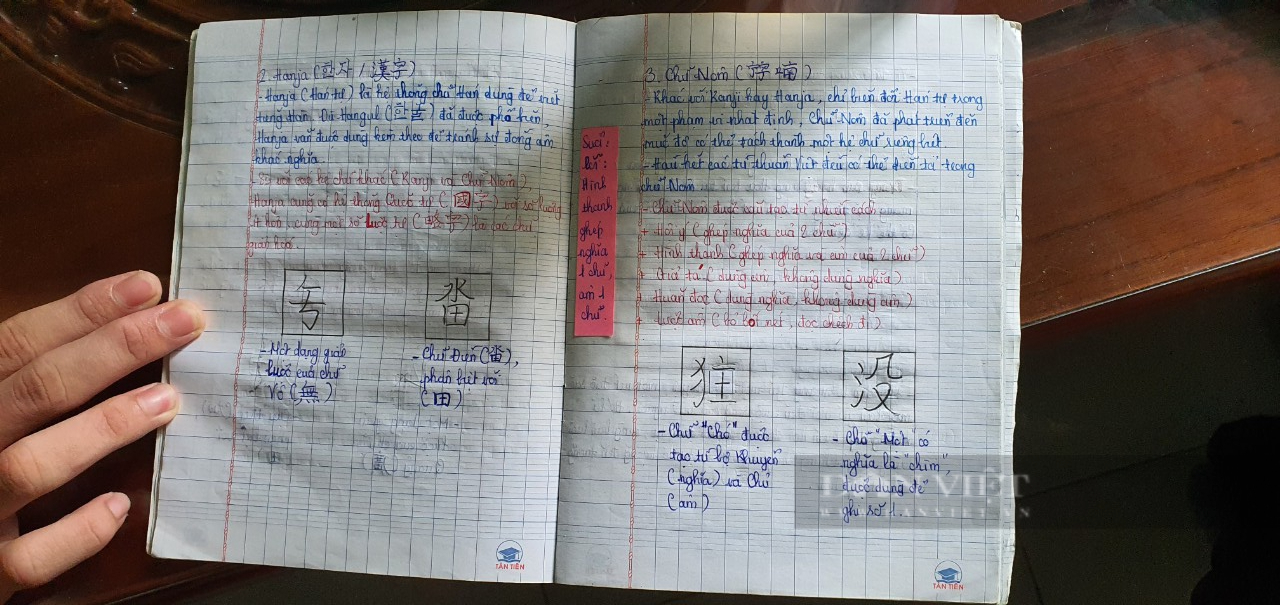 2. Hanja (한자 / 漢字)
- Hanja (Hán tự) là hệ thống chữ Hán dùng để viết
tiếng Hàn. Dù Hangul (한글) đã được phổ biến
Hanja vẫn được dùng kèm theo để tránh sự đồng âm
khác nghĩa.
- So với các hệ chữ khác (Kanji và Chữ Nôm),
Hanja cũng có hệ thống Quốc tự (國字) với số lượng
ít hơn, cùng một số lược tự (略字) là các chữ
giản hoá.
畓
- Một dạng giản
lược của chữ
Vô (無)
- Chữ Điền (畓),
phân biệt với
(田)
TÂN TIẾN
Suối:
Hình
thanh
ghép
nghĩa
1 chữ,
âm 1
chữ.
3. Chữ Nôm (喃)
- Khác với Kanji hay Hanja, chỉ biến đổi Hán tự trong
một phạm vi nhất định, Chữ Nôm đã phát triển đến
mức độ có thể tách thành một hệ chữ riêng biệt.
- Hầu hết các từ thuần Việt đều có thể biến tả trong
chữ Nôm
- Chữ Nôm được cấu tạo từ nhiều cách
+ Hội ý (ghép nghĩa của 2 chữ)
+ Hình thanh (ghép nghĩa và âm của 2 chữ)
+ Giả tá (dùng âm, không dùng nghĩa)
+ Huấn đọc (dùng nghĩa, không dùng âm)
+ Lược âm (bỏ bớt nét, đọc chệch đi)
没
- Chữ "Chó" được
tạo từ bộ Khuyển
(nghĩa) và Chủ
(âm)
- Chữ "Một" có
nghĩa là "chìm",
được dùng để
ghi số 1.
DÂN VIỆT
WWW.DANVIET.VN
TÂN TIẾN